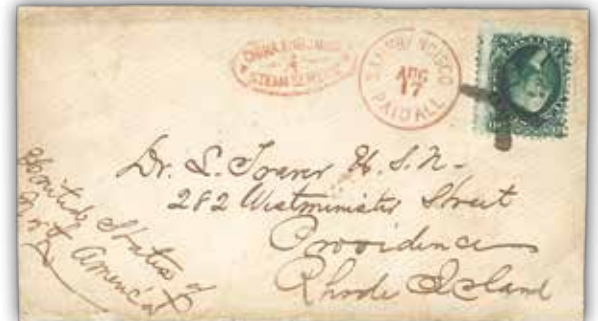 CHINA AND
STEAM SERVICE
SAN FRANCISCO
AUG
17
PAID ALL
Dr. S. U.S.N.
282 Westminister Street
Providence
Rhode Island
United States of
North America